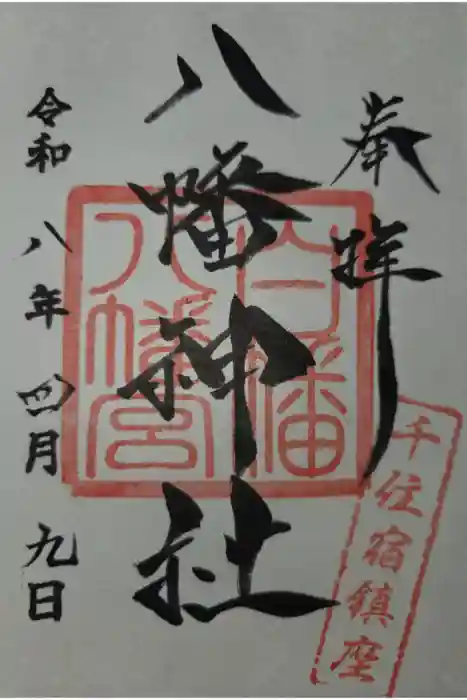 奉拝
八幡神社
令和八年四月九日
白幡
八幡宮
千住宿鎮座